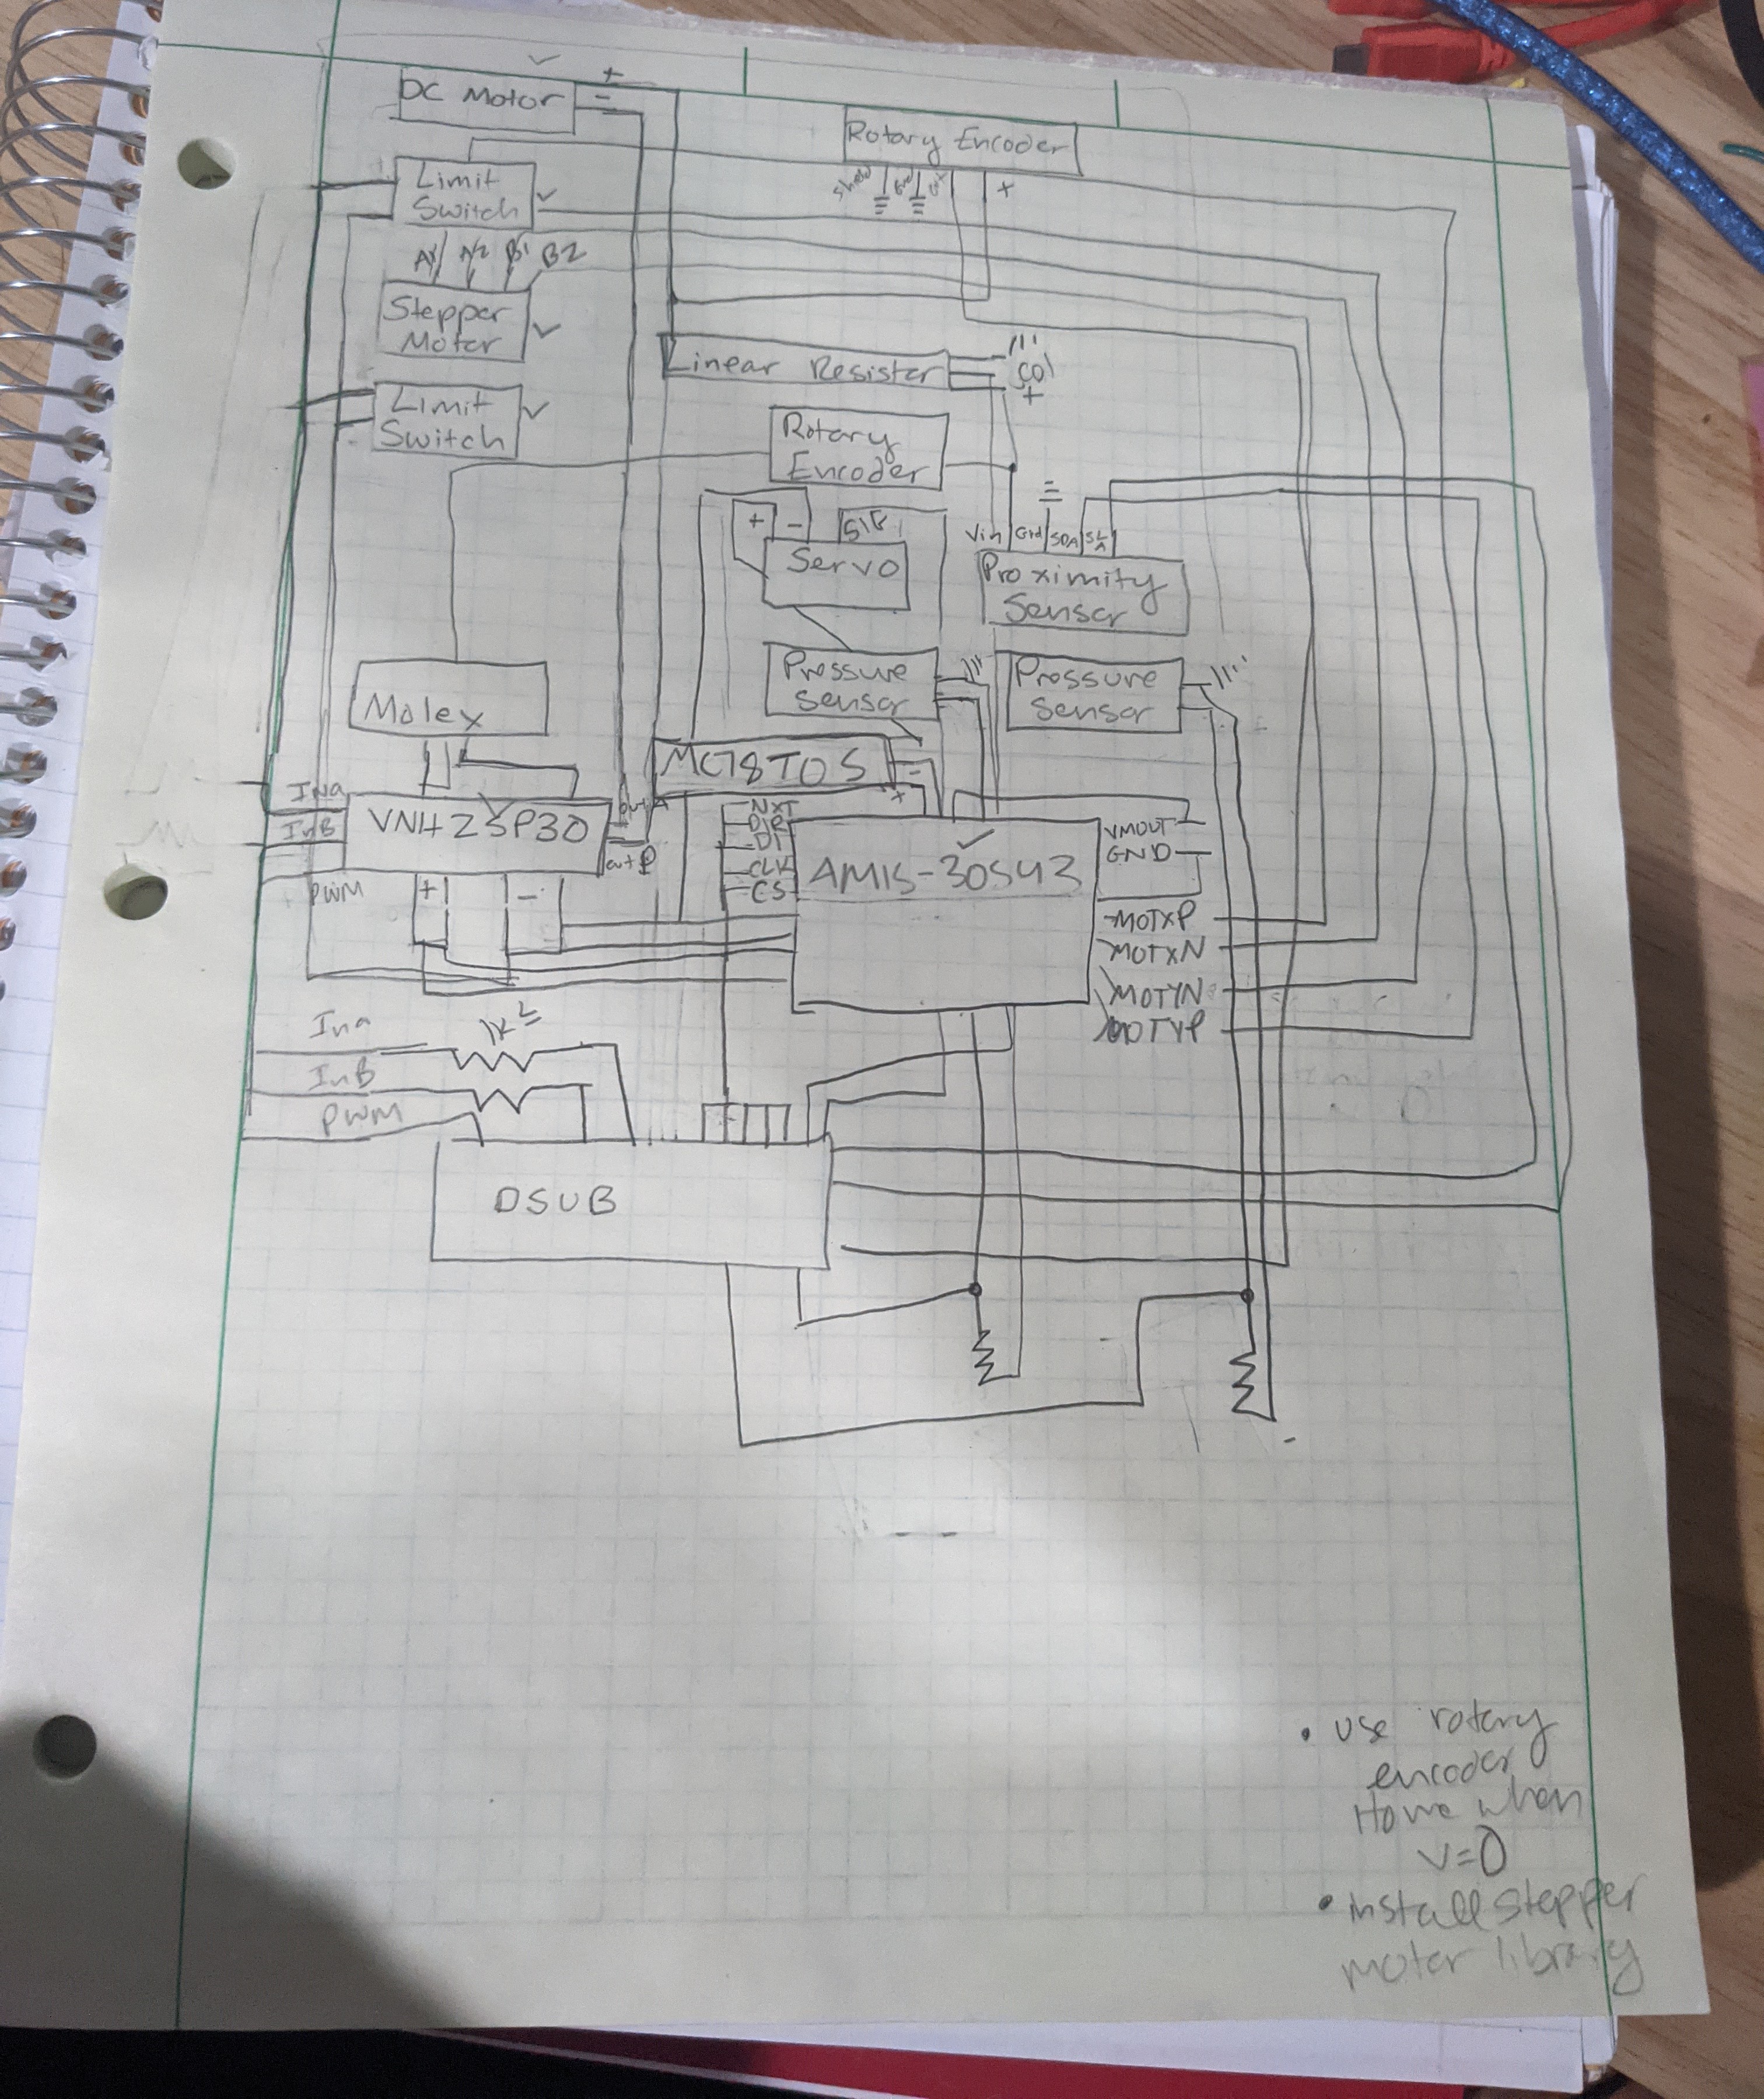 DC Motor
+
-
Rotary Encoder
Shield
Gnd
+
Limit
Switch
A1 A2 B1 B2
Stepper
Motor
Linear Resistor
+
Limit
Switch
Rotary
Encoder
+ -
SIG
Servo
Vin Gnd SDA
Proximity
Sensor
Pressure
Sensor
Pressure
Sensor
Molex
MC78T05
-
+
INa
InB
PWM
VNH2SP30
out A
out B
+ -
NXT
DIR
DI
CLK
CS
AMIS-30543
VMOUT
GND
MOTXP
MOTXN
MOTYN
MOTYP
Ina
InB
PWM
DSUB
• use rotary
encoder
Home when
V=0
• install stepper
motor library